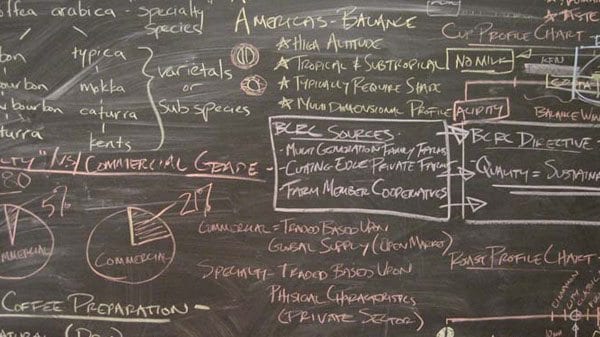 coffea arabica - specialty
species
typica
bourbon
mokka
bourbon
caturra
kents
varietals
or
Sub species
AMERICAS - BALANCE
★ HIGH ALTITUDE
★ TROPICAL & SUBTROPICAL
★ TYPICALLY REQUIRE SHADE
★ MULTI DIMENSIONAL PROFILE
ACIDITY
CUP PROFILE CHART -
NO MILK
KEN
BCBC SOURCES -
- MULTI GENERATION FAMILY FARMS
- CUTTING EDGE PRIVATE FARMS
- FARM MEMBER COOPERATIVES
BCBC DIRECTIVE -
QUALITY = SUSTAINA
LTY "VS" COMMERCIAL GRADE -
80
5%
21%
COMMERCIAL
COMMERCIAL
COMMERCIAL = TRADED BASED UPON
GLOBAL SUPPLY (OPEN MARKET)
SPECIALTY - TRADED BASED UPON
PHISICAL CHARACTERISTICS
(PRIVATE SECTOR)
ROAST PROFILE CHART -
CINNAMON
CITY
COFFEE PREPARATION -